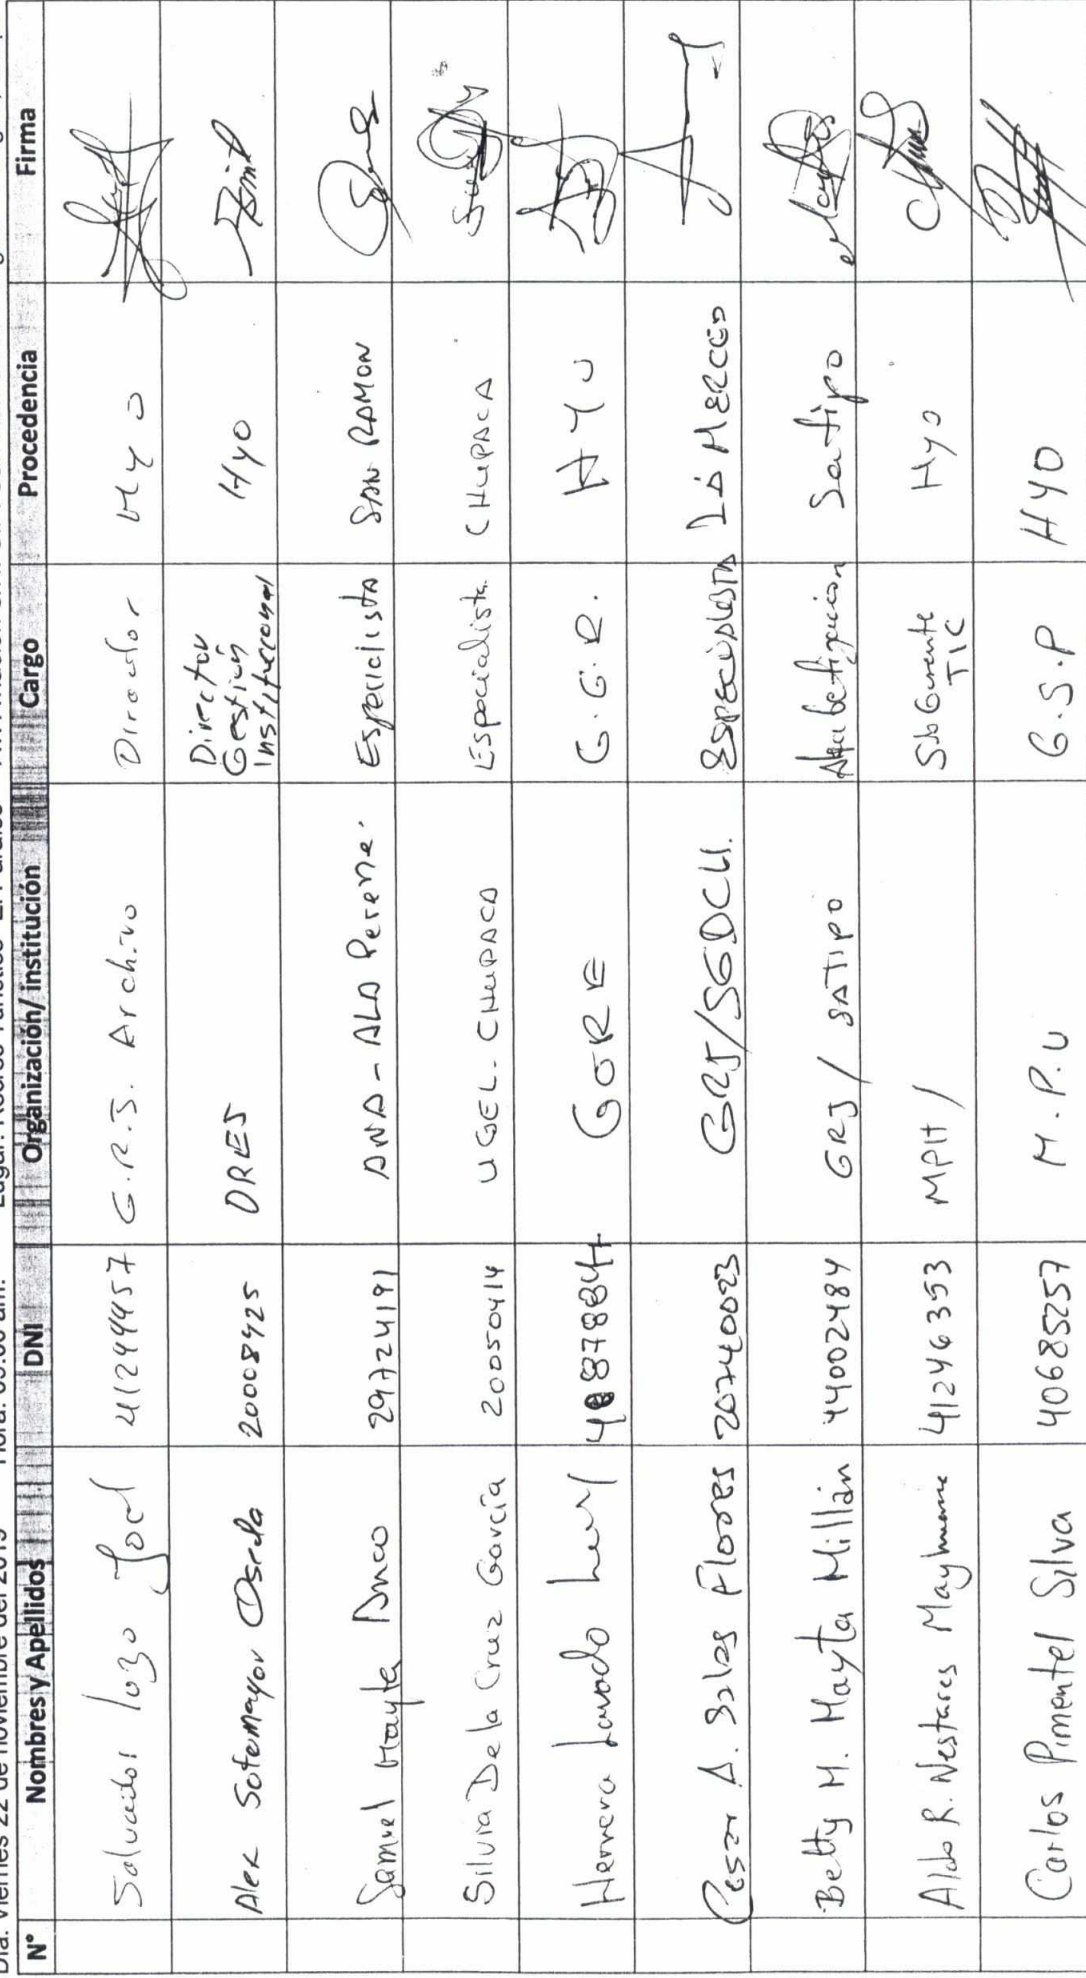 Día: Viernes 22 de noviembre del 2019 Hora: 09:00 am. Lugar: Recreo Turístico
N° Nombres y Apellidos DNI Organización/ institución Cargo Procedencia Firma
Salvador Lozo Joel 41299957 G.R.J. Archivo Director Hyo
Alex Sotomayor Osreda 20008425 DREJ Director Gestión Institucional Hyo
Samuel Mayta Anco 29724191 ANA - ALA Perene. Especialista SAN RAMON
Silvia De la Cruz García 20050414 UGEL - CHUPACA Especialista CHUPACA
Herrera Lavado GORE G.G.R. HYO
Cesar A. Salas Flores 20740023 GRJ/SGDCH. Especialista LA MERCED
Betty M. Mayta Millán 44002484 GRJ / SATIPO Alfabetización Satipo
Aldo R. Nestares Mayhuasca 41246353 MPH / Sub Gerente TIC Hyo
Carlos Pimentel Silva 40685257 M.P.U G.S.P HYO